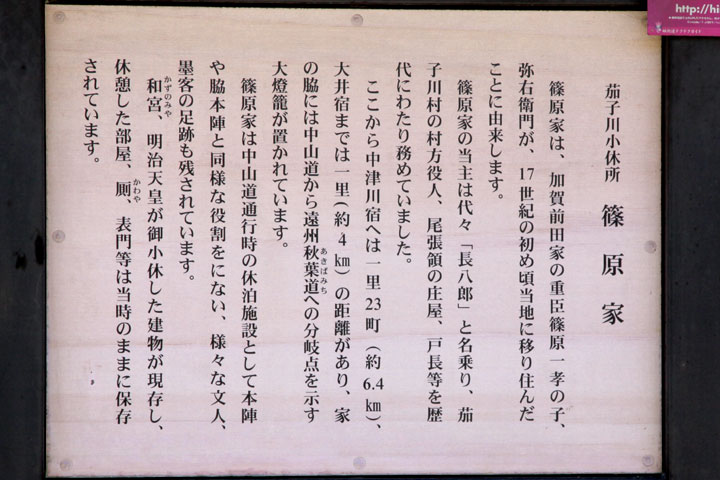 茄子川小休所 篠原家
篠原家は、加賀前田家の重臣篠原一孝の子、
弥右衛門が、17世紀の初め頃当地に移り住んだ
ことに由来します。
篠原家の当主は代々「長八郎」と名乗り、茄
子川村の村方役人、尾張領の庄屋、戸長等を歴
代にわたり務めていました。
ここから中津川宿へは一里23町(約6.4km)、
大井宿までは一里(約4km)の距離があり、家
の脇には中山道から遠州秋葉道への分岐点を示す
あきばみち
大燈籠が置かれています。
篠原家は中山道通行時の休泊施設として本陣
や脇本陣と同様な役割をにない、様々な文人、
墨客の足跡も残されています。
和宮、明治天皇が御小休した建物が現存し、
かずのみや
休憩した部屋、厠、表門等は当時のままに保存
かわや
されています。
http://hi